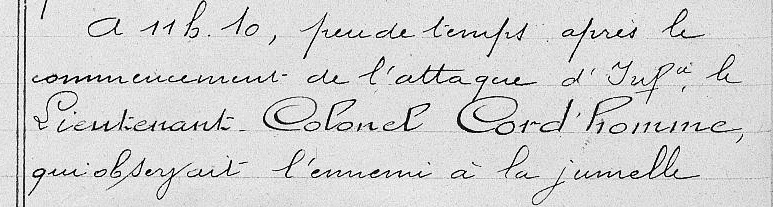 A 11h.10, peu de temps après le
commencement de l'attaque d'Infie, le
Lieutenant-Colonel Cord'homme,
qui observait l'ennemi à la jumelle